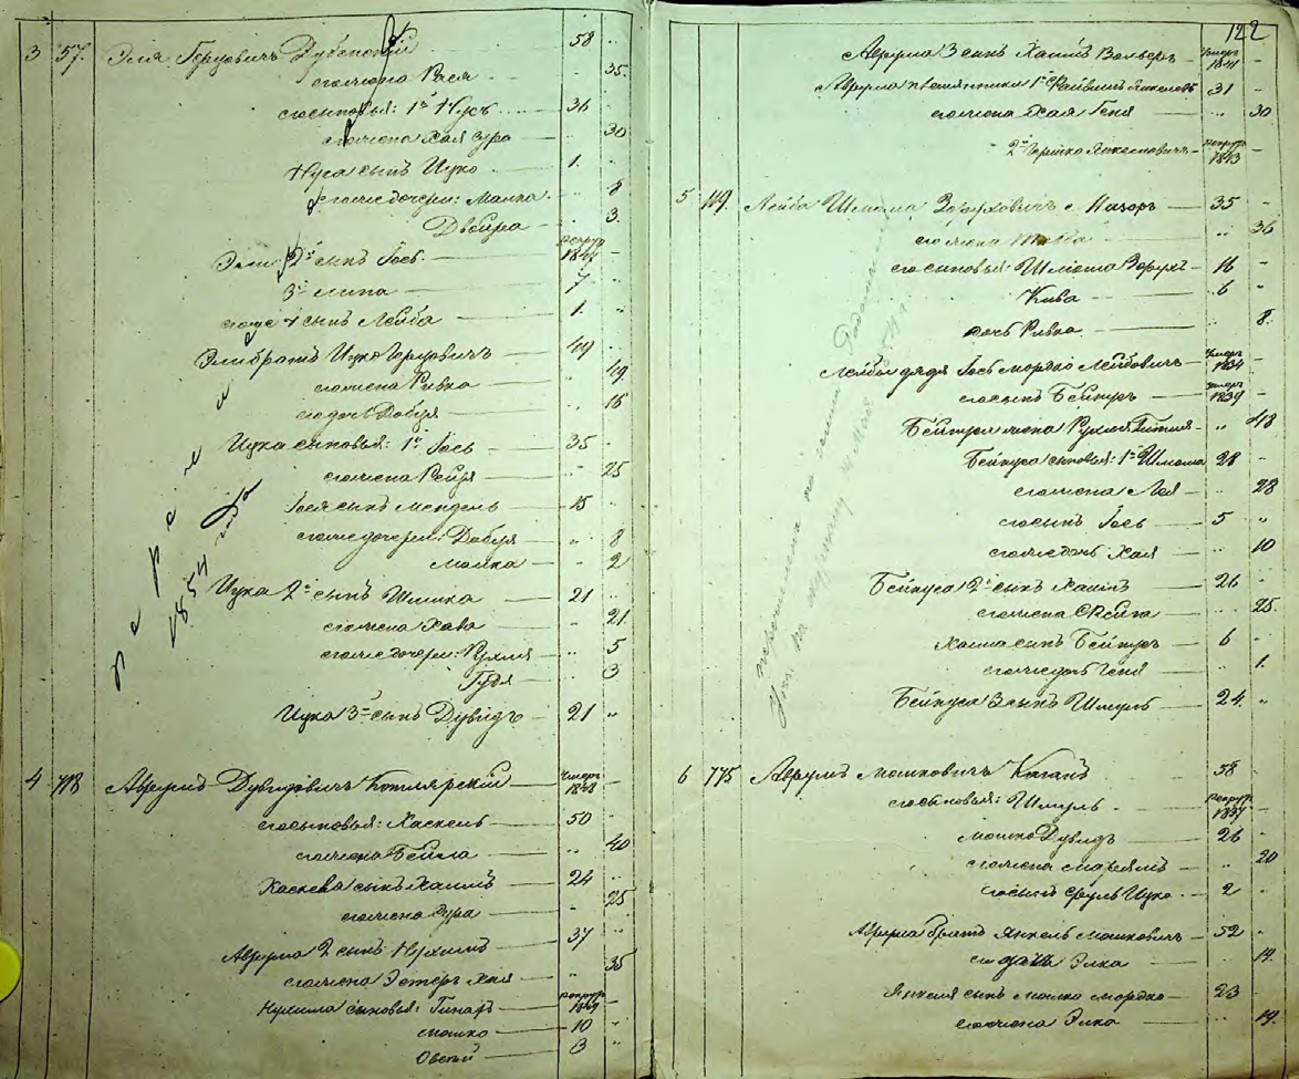 3 57. Эля Герцовичъ Дубенскій 58
его жена Рася 35
его сыновья: 1й Нусъ 36
его жена Хая Сура 30
Нуса сынъ Ицко 1
его же дочери: Малка 8
Двойра 3.
Эли 2й сынъ Іосъ рекрут 1844
3й Липа 7
его же 4 сынъ Лейба 1
Эли братъ Ицко Герцовичъ 49
его жена Ривка 49
его дочь Добруя 16
Ицка сыновья: 1й Іось 35
его жена Рейзя 25
Іося сынъ Мендель 15
его же дочери: Добруя 8
Малка 2
Ицка 2й сынъ Шлиома 21
его жена Хава 21
его же дочери: Рухля 5
Гудя 3
Ицка 3й сынъ Дувидъ 21
1854 года
4 718 Аврумъ Дувидовичъ Котлярскій умеръ 1848
его сыновья: Хаскель 50
его жена Бейла 40
Хаскеля сынъ Хаимъ 24
его жена Сура 25
Аврума 2 сынъ Нухимъ 37
его жена Эстеръ Хая 35
Нухима сыновья: рекрут 1849
Мошко 10
Овсей 3
122
Аврума 3 сынъ Хаимъ Вольеръ умеръ 1841
Аврума племянники 1й Файвишъ Янкелевъ 31
его жена Хая Геня 30
2й Гершко Янкелевичъ рекрут 1843
5 Лейба Шлиома Зорухович 35
его жена 36
его сыновья: Шлиома Зорухъ 16
Кива 6
дочь Ривка 8.
Лейбы дядя Іось Мордко Лейбовичъ умеръ 1834
его сынъ Бейнусъ умеръ 1839
Бейнуса жена Рухля Гитля 48
Бейнуса сыновья: 1й Шлиома 28
его жена Лея 28
его сынъ Іось 5
его же дочь Хая 10
Бейнуса 2й сынъ Хаимъ 26
его жена Фейга 25
Хаима сынъ Бейнусъ 6
его же дочь Геня 1.
Бейнуса 3 сынъ Шмуль 24
6 775 Аврумъ Мошковичъ Коганъ 58
его сыновья: Шмуль рекрут 1837
Мошко Дувидъ 26
его жена Маріямъ 20
его сынъ Сруль Ицко 2
Аврума братъ Янкель Мошковичъ 52
его дочь Элка 14
Янкеля сынъ Мошко Мордко 23
его жена Элка 19.